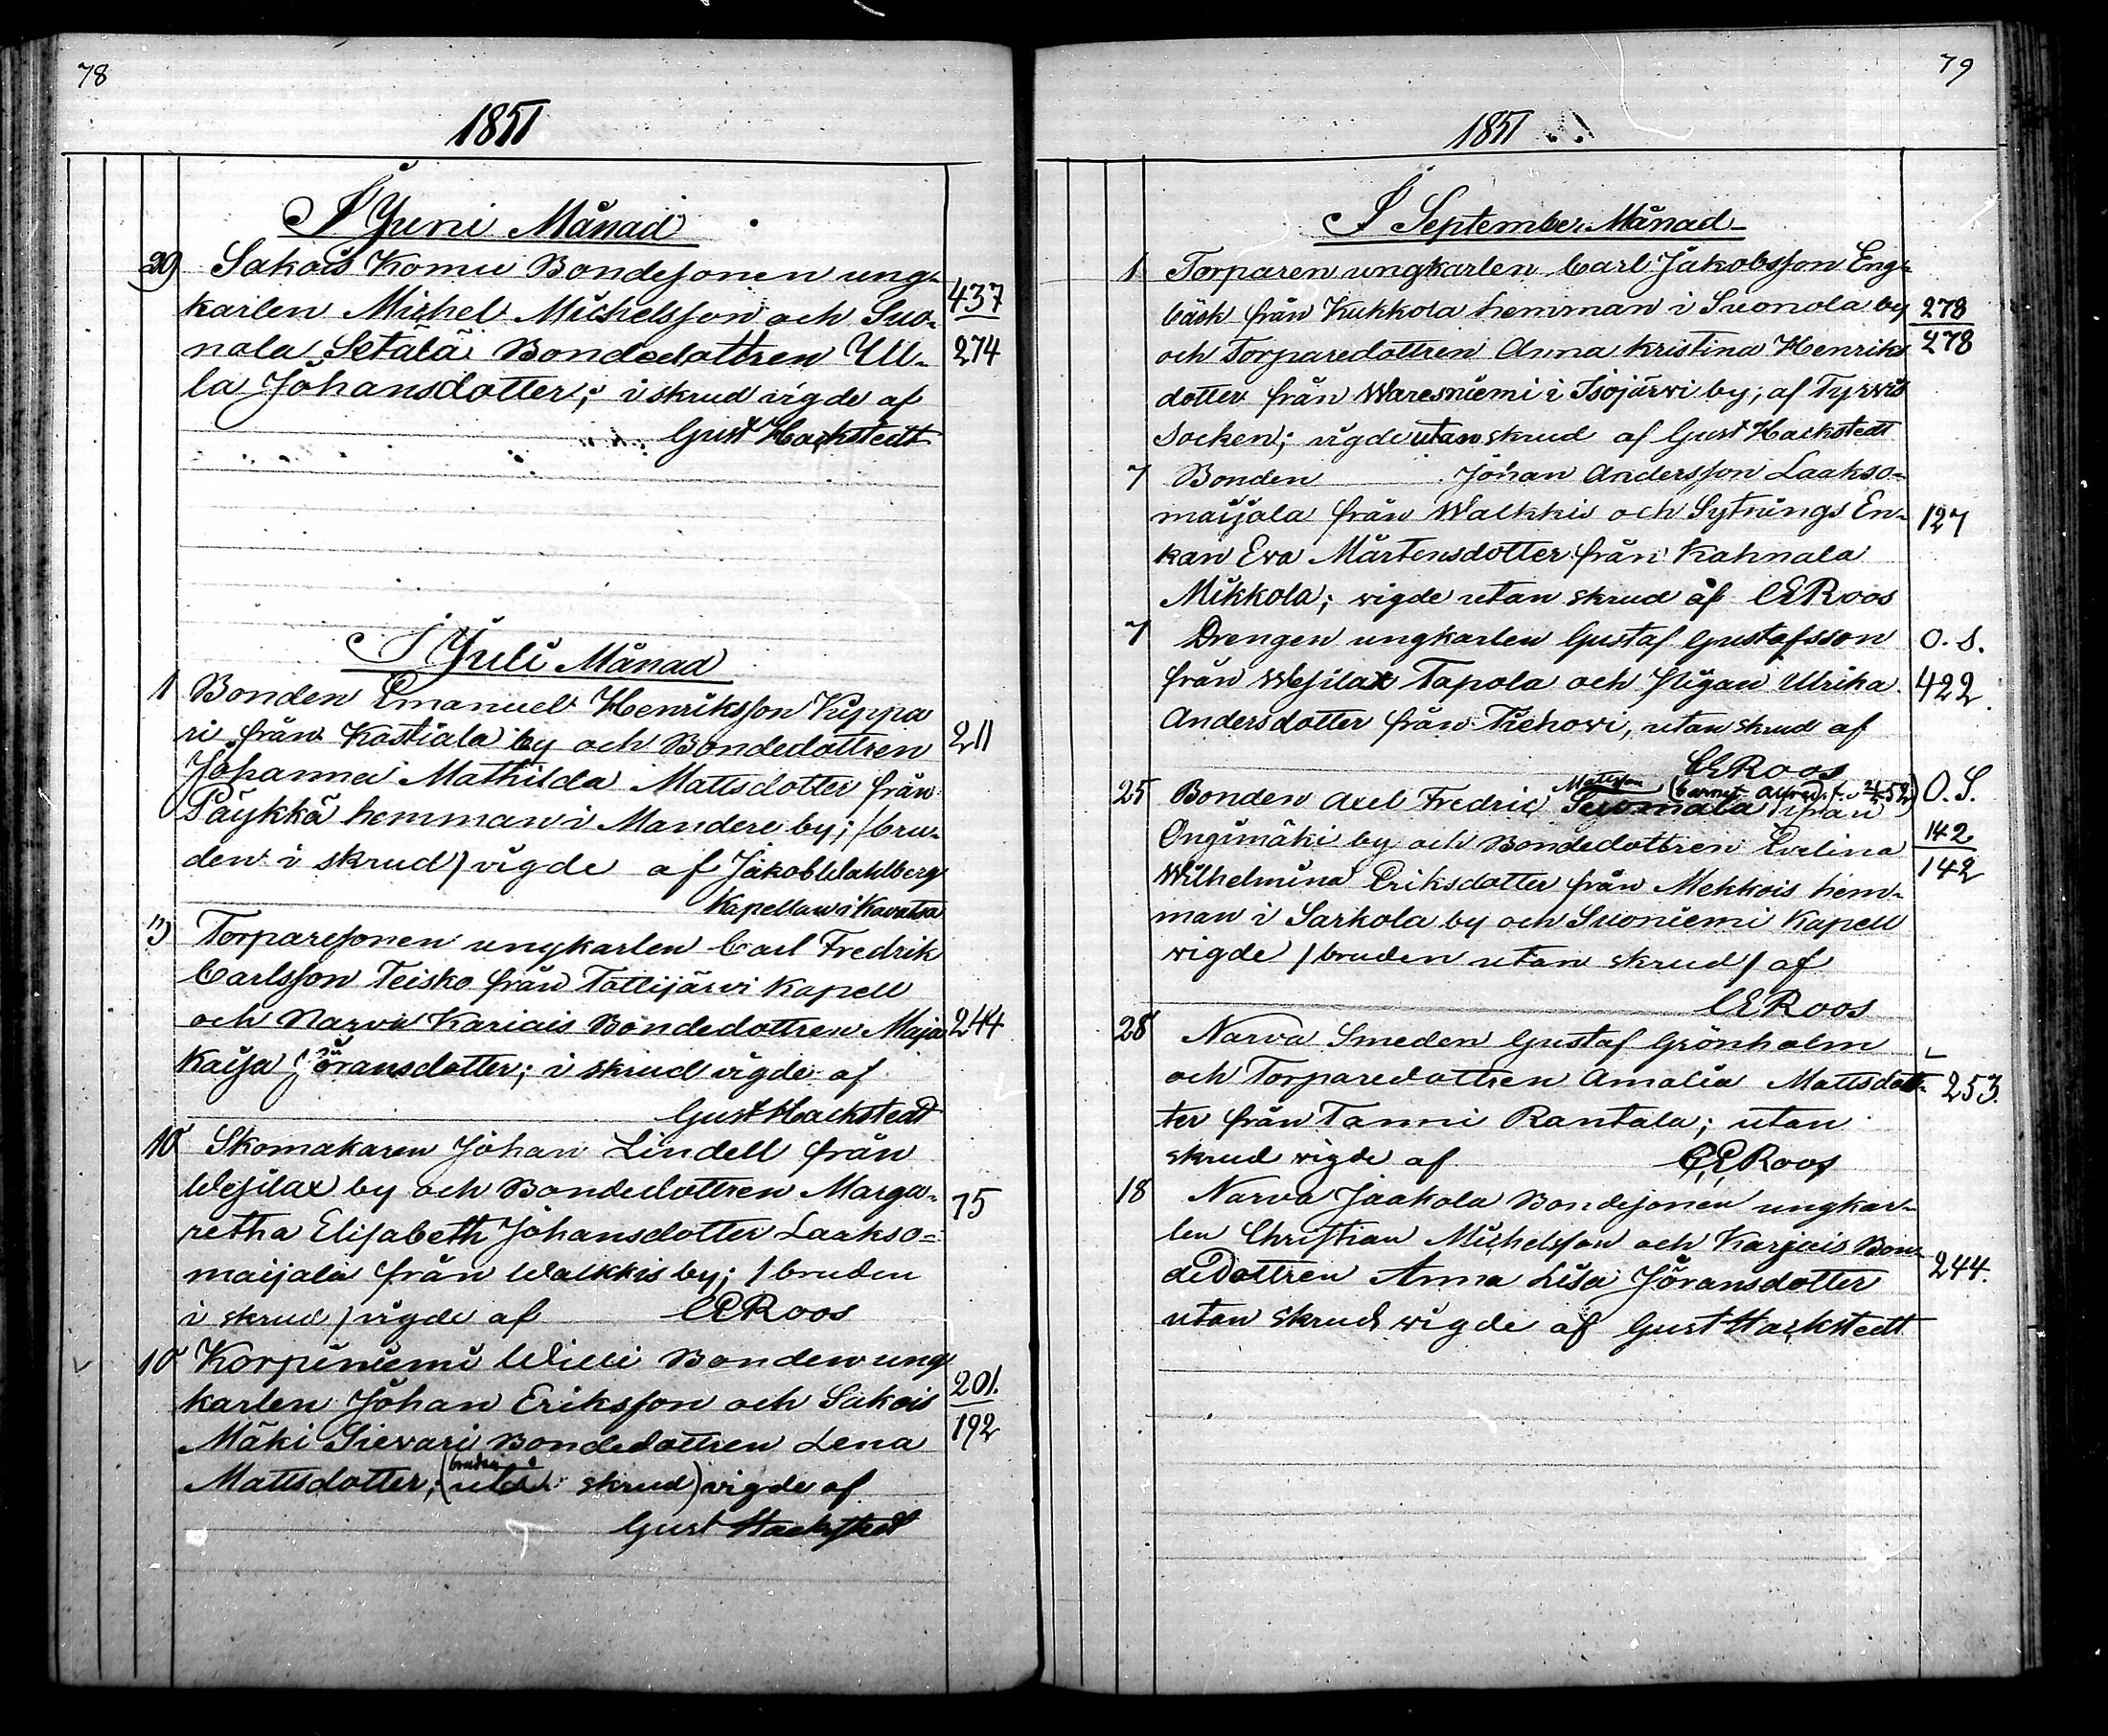 78
1851
I Juni Månad
29) Sakois Komu Bondesonen ung-
karlen Michel Michelsson och Suo- 437
nala Setälä Bondedottren Ul- 274
la Johansdotter; i skrud vigde af
Gust Hackstedt
I Juli Månad
1 Bonden Emanuel Henriksson Kippa
ri från Kostiala by och Bondedottren 211
Johanna Mathilda Mattsdotter från
Päykkä hemman i Mandere by; /bru-
den i skrud/ vigde af Jakob Wahlberg
Kapellan i Kauvatsa
") Torparesonen ungkarlen Carl Fredrik
Carlsson Teisko från Tottijärvi Kapell
och Narva Kariais Bondedottren Maja 244
Kaisa Göransdotter; i skrud vigde af
Gust Hackstedt
10 Skomakaren Johan Lindell från
Wesilax by och Bondedottren Marga- 75
retha Elisabeth Johansdotter Laakso=
maijala från Walkkis by; /bruden
i skrud/ vigde af CERoos
10 Korpiniemi Willi Bonden ung
karlen Johan Eriksson och Sakois 201.
Mäki Sievari Bondedottren Lena 192
Mattsdotter; (bruden utan skrud) vigde af
Gust Hackstedt
79
1851
I September Månad
1 Torparen ungkarlen Carl Jakobsson Eng-
bäck från Kukkola hemman i Suonola by 278
och Torparedottren Anna Kristina Henriks 278
dotter från Waresniemi i Isojärwi by; af Tyrvis
Socken; vigde utan skrud af Gust Hackstedt
7 Bonden Johan Andersson Laakso-
maijala från Walkkis och Sytnings En- 127
kan Eva Mårtensdotter från Kahnala
Mikkola; vigde utan skrud af CERoos
7 Drengen ungkarlen Gustaf Gustafsson O. S.
från Wesilax Tapola och pigan Ulrika 422
Andersdotter från Tiehowi, utan skrud af
CERoos
Mattsson (barnet Alfred f.
25 Bonden Axel Fredric Suomala från O. S.
Onginmäki by och Bondedottren Evelina 142
Wilhelmina Eriksdotter från Mekkois hem- 142
man i Sarkola by och Suoniemi Kapell
vigde /bruden utan skrud/ af
CERoos
28 Narva Smeden Gustaf Grönholm
och Torparedottren Amalia Mattsdot- 253.
ter från Tanni Rantala; utan
skrud vigde af CERoos
18 Narva Jaakola Bondesonen ungkar-
len Christian Michelsson och Karjais Bon-
dedottren Anna Lisa Jöransdotter 244.
utan skrud vigde af Gust Hackstedt